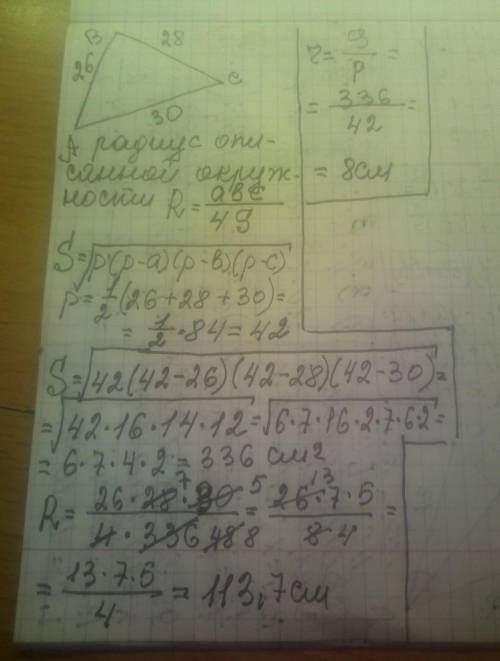 B 28
26 C
30
A радиус опи-
санной окруж-
ности R = abc / 4S
S = √p(p-a)(p-в)(p-c)
p = 1/2 (26+28+30) =
= 1/2 · 84 = 42
S = √42(42-26)(42-28)(42-30) =
= √42·16·14·12 = √6·7·16·2·7·6·2 =
= 6·7·4·2 = 336 см²
R = 26·28 7·30 5 / 4·336 48 8 = 26 13·7·5 / 8 4 =
= 13·7·5 / 4 = 113,7 см
r = S / p =
= 336 / 42 =
= 8 см